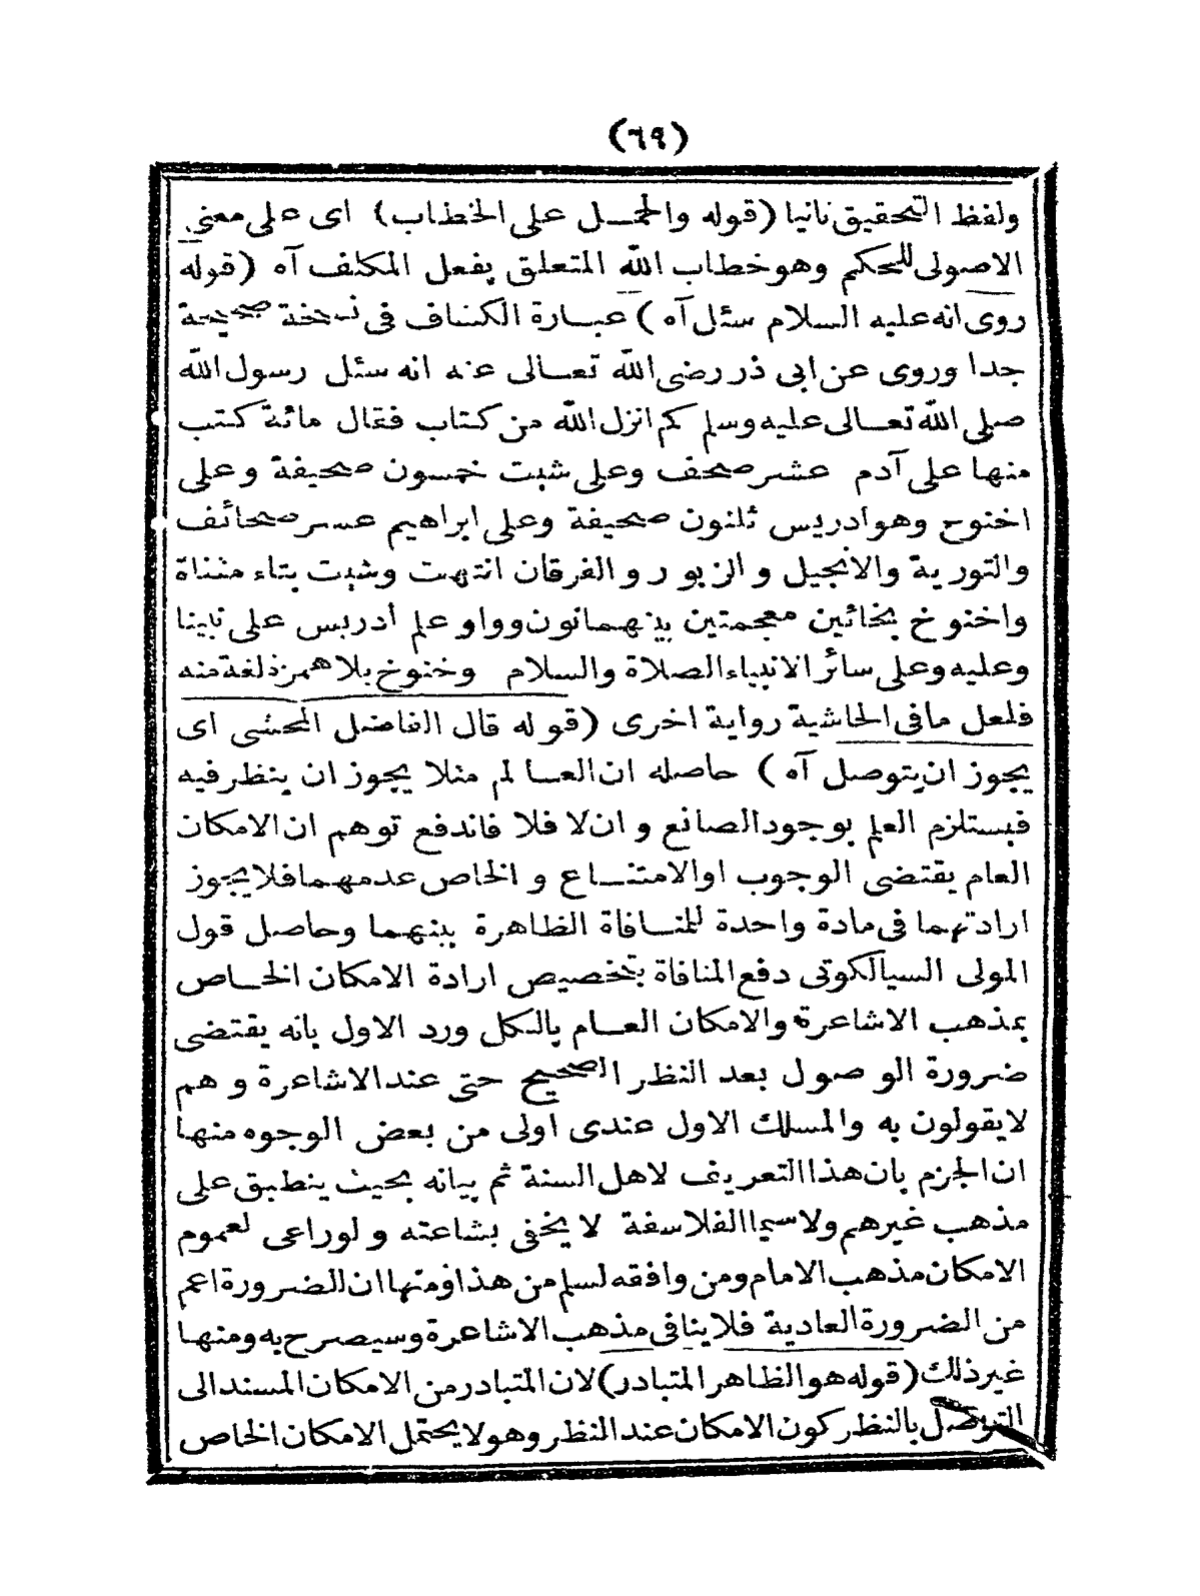 (٦٩)
ولفظ التحقيق ثانيا (قوله والحمـــل على الخطاب) اى على معنى
الاصولى للحكم وهو خطاب الله المتعلق بفعل المكلف آه (قوله
روى انه عليه السلام سئل آه) عبـارة الكشاف فى نسخة صحيحة
جدا وروى عن ابى ذر رضى الله تعـالى عنه انه سئل رسول الله
صلى الله تعـالى عليه وسلم كم انزل الله من كتاب فقال مائة كتب
منها على آدم عشر صحف وعلى شيث خمسون صحيفة وعلى
اخنوح وهو ادريس ثلثون صحيفة وعلى ابراهيم عشر صحائف
والتورية والانجيل والزبور والفرقان انتهت وشيث بثاء مثناة
واخنوخ بخائين معجمتين بينهما نون وواو علم أدريس على نبينا
وعليه وعلى سائر الانبياء الصلاة والسلام وخنوخ بلا همزة لغة منه
فلعل ما فى الحاشية رواية اخرى (قوله قال الفاضل المحشى اى
يجوز ان يتوصل آه) حاصله ان العـالم مثلا يجوز ان ينظر فيه
فيستلزم العلم بوجود الصانع وان لا فلا فاندفع توهم ان الامكان
العام يقتضى الوجوب او الامتنـاع والخاص عدمهما فلا يجوز
ارادتهما فى مادة واحدة للمنـافاة الظاهرة بينهما وحاصل قول
المولى السيالكوتى دفع المنافاة بتخصيص ارادة الامكان الخـاص
بمذهب الاشاعرة والامكان العـام بالكل ورد الاول بانه يقتضى
ضرورة الوصول بعد النظر الصحيح حتى عند الاشاعرة وهم
لا يقولون به والمسلك الاول عندى اولى من بعض الوجوه منها
ان الجزم بان هذا التعريف لاهل السنة ثم بيانه بحيث ينطبق على
مذهب غيرهم ولا سيما الفلاسفة لا يخفى بشاعته ولو راعى لعموم
الامكان مذهب الامام ومن وافقه لسلم من هذا ومنها ان الضرورة اعم
من الضرورة العادية فلا ينافى مذهب الاشاعرة وسيصرح به ومنها
غير ذلك (قوله هو الظاهر المتبادر) لان المتبادر من الامكان المسند الى
التوصل بالنظر كون الامكان عند النظر وهو لا يحتمل الامكان الخاص